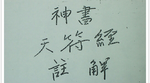 神書
天符經
註解